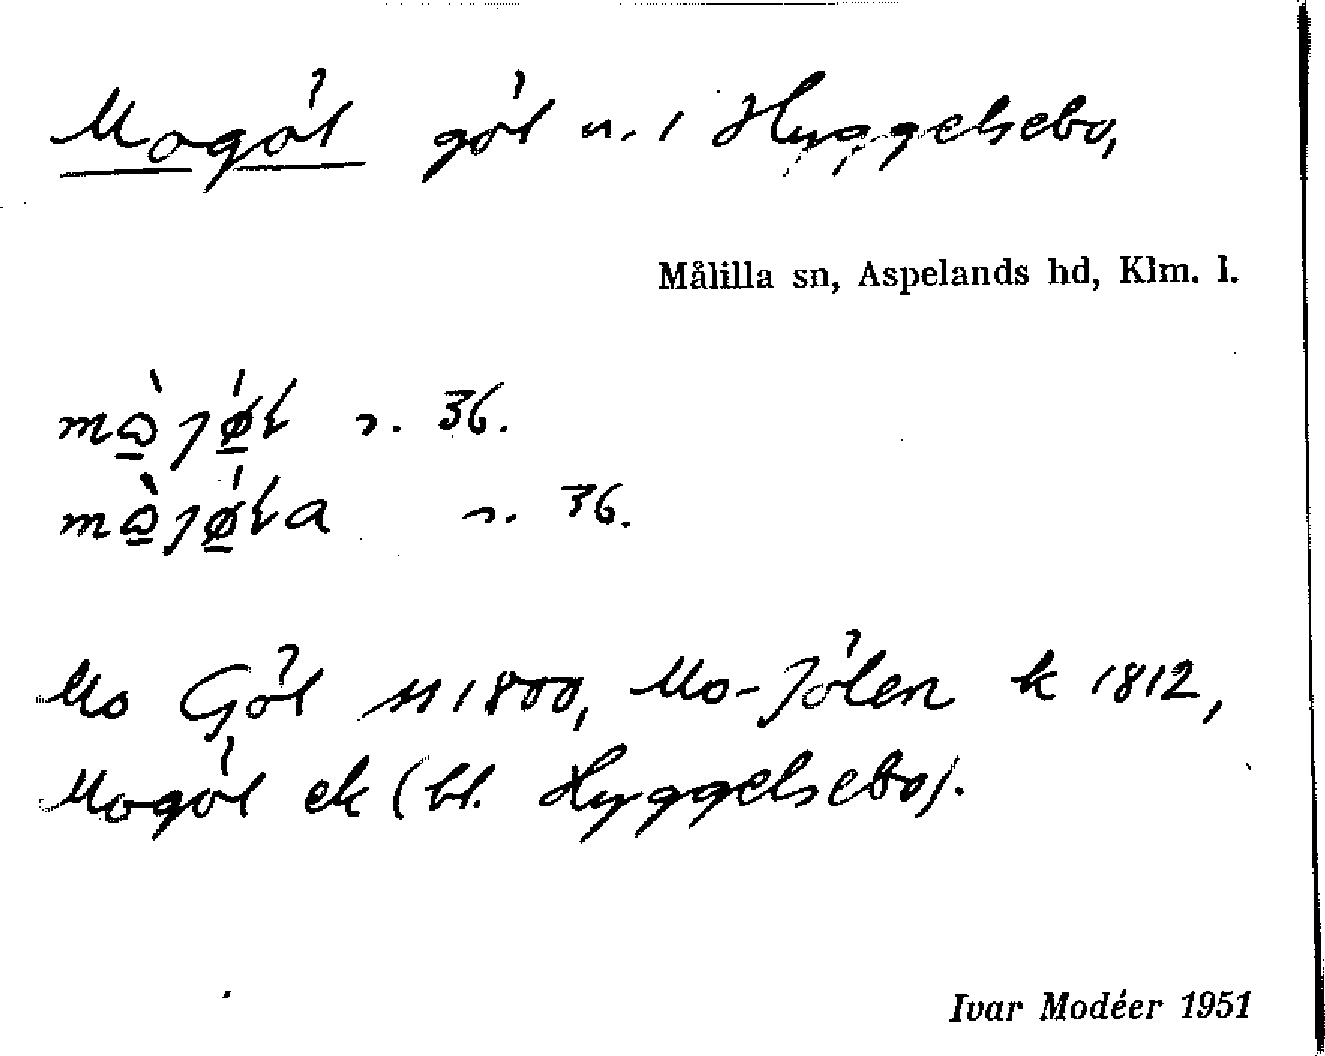 Mogöl göl n. i Hyggelsebo,
Målilla sn, Aspelands hd, Klm. l.
s. 36.
s. 36.
Mo Göl 1800, Mo-Jölen k 1812,
Mogöl ek (bl. Hyggelsebo).
Ivar Modéer 1951